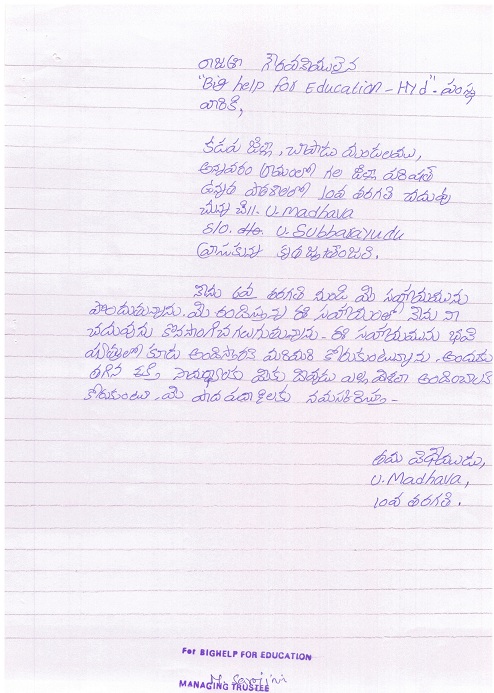 గౌరవనీయులైన
"Big help for Education - Hyd" - సంస్థ
వారికి,
కడప జిల్లా, చాపాడు మండలము,
అన్నవరం గ్రామంలో గల జిల్లా పరిషత్
ఉన్నత పాఠశాలలో 10వ తరగతి చదువు
చున్న చి॥. U. Madhava
S/o. U. Subbarayudu
వ్రాసుకున్న కృతజ్ఞతాంజలి.
నేను 6వ తరగతి నుండి మీ సహాయమును
పొందుచున్నాను. మీ రందిస్తున్న ఈ సహాయంతో నేను నా
చదువును కొనసాగించగలుగుచున్నాను. ఈ సహాయమును భవి
ష్యత్తులో కూడా అందిస్తారని మరిమరి కోరుకుంటున్నాను. అందుకు
తగిన శక్తి సామర్థ్యాలను మీకు దేవుడు ఎల్లవేళలా అందించాలని
కోరుకుంటూ, మీ పాద పద్మాలకు నమస్కరిస్తూ -
తమ విధేయుడు,
U. Madhava,
10వ తరగతి.
For BIGHELP FOR EDUCATION
M. Sarojini
MANAGING TRUSTEE